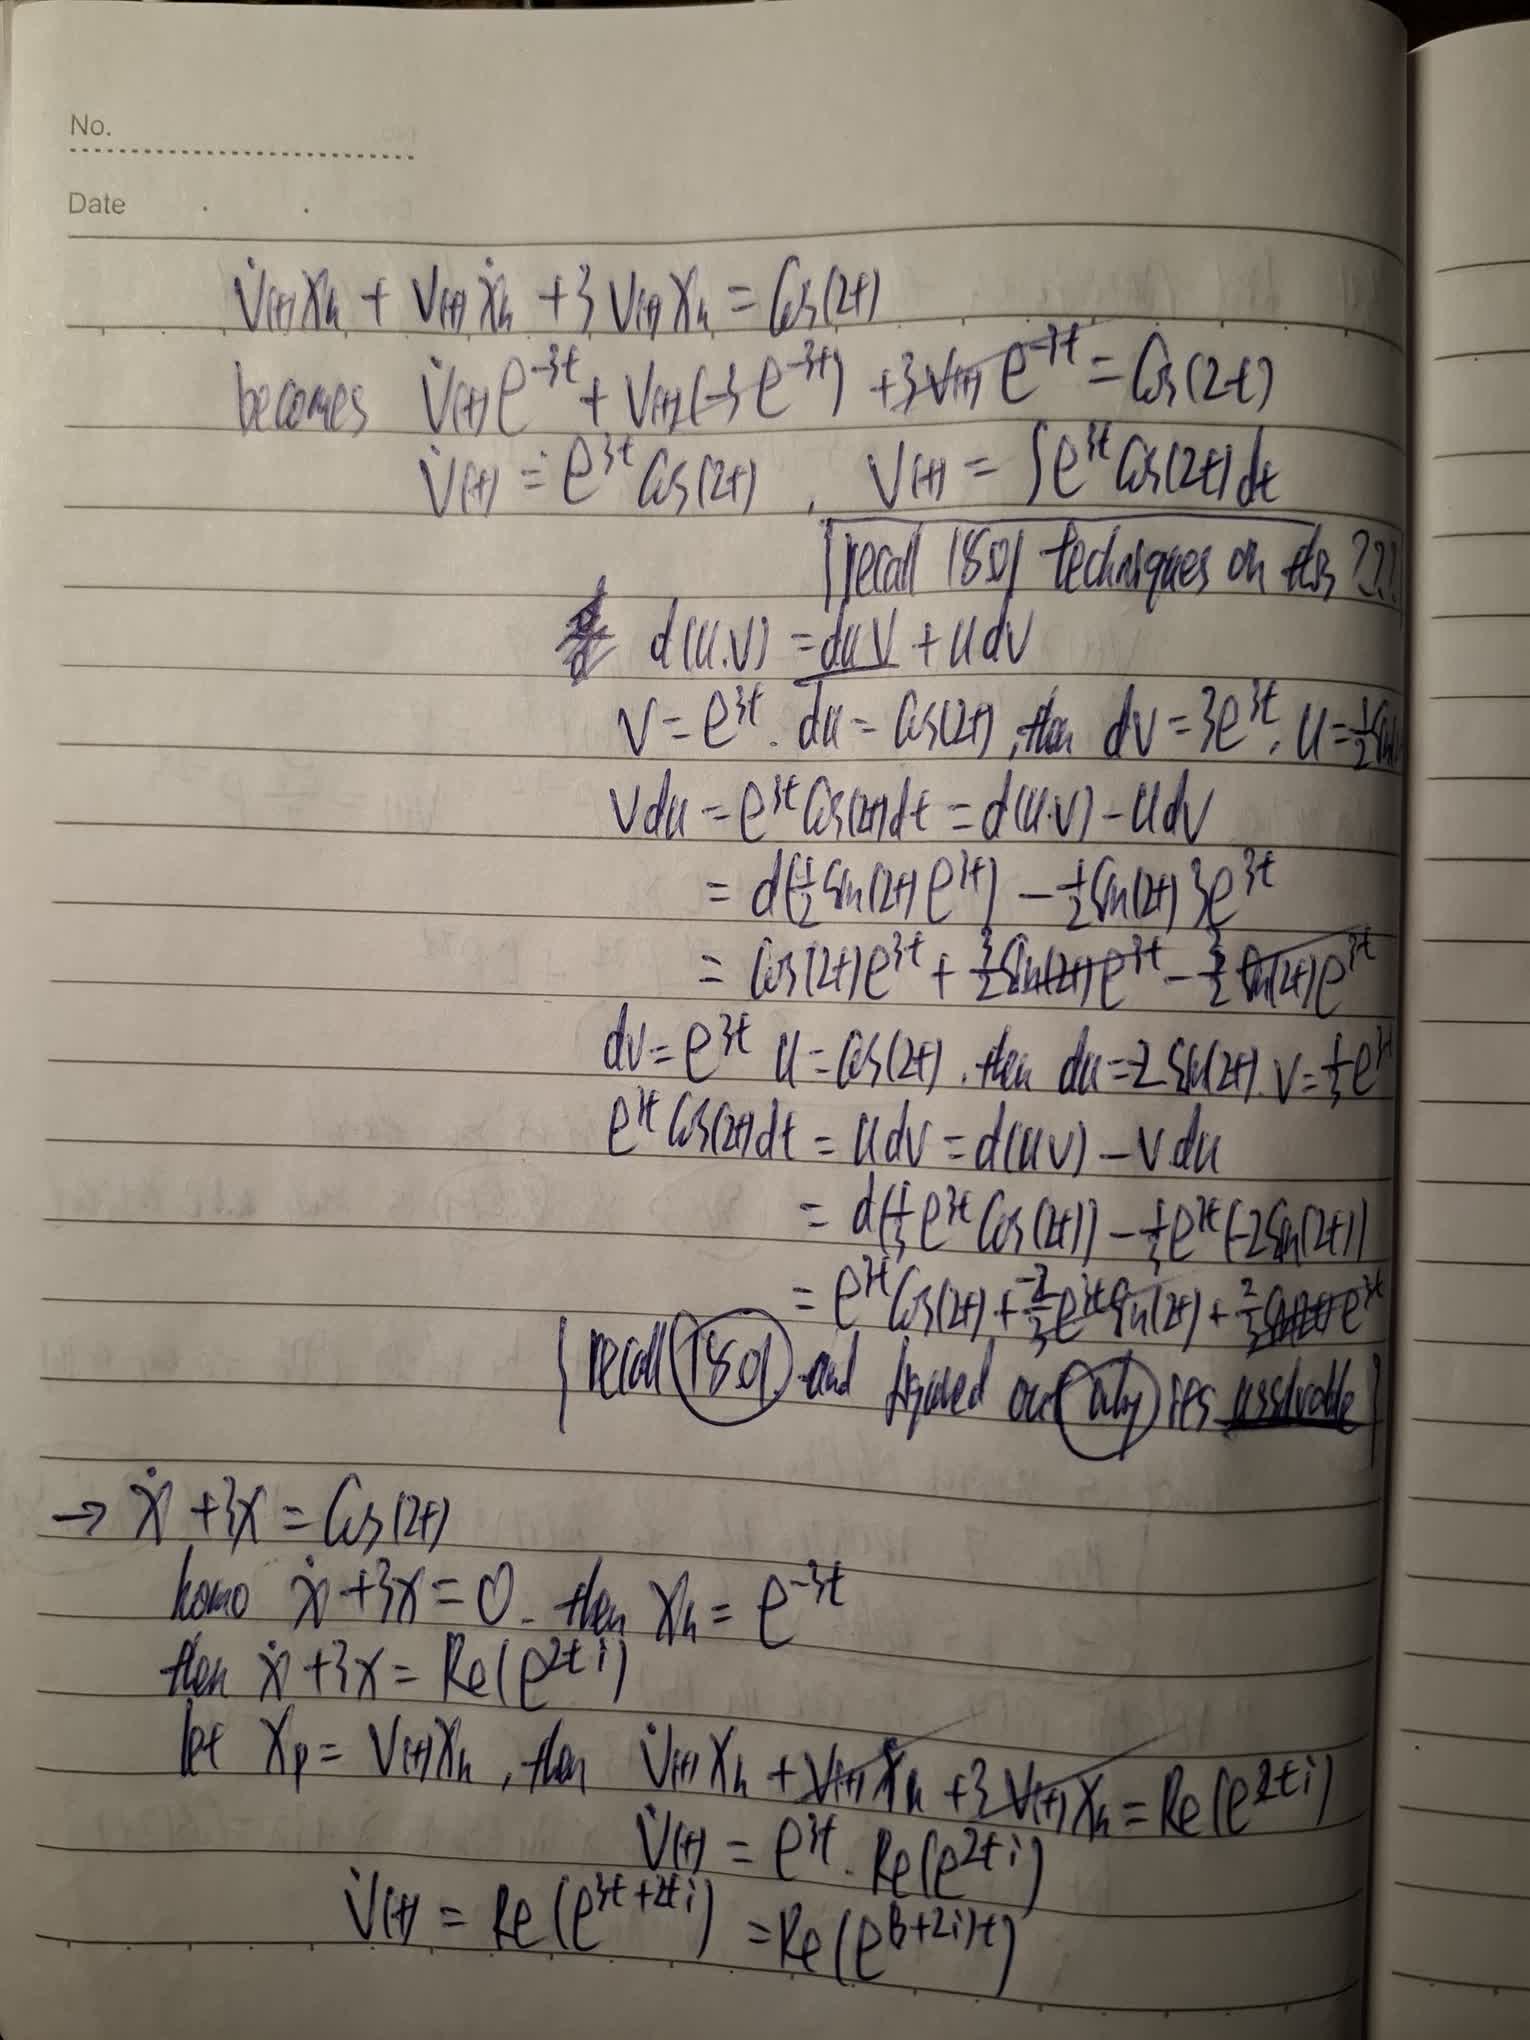 No.
Date
v̇(t)xₕ + v(t)ẋₕ + 3v(t)xₕ = Cos(2t)
becomes v̇(t)e^{-3t} + v(t)(-3e^{-3t}) + 3v(t)e^{-3t} = Cos(2t)
v̇(t) = e^{3t}Cos(2t), v(t) = ∫e^{3t}Cos(2t)dt
recall 1801 techniques on this ???
d(u.v) = duv + udv
v = e^{3t}. du = Cos(2t), then dv = 3e^{3t}, u = ½Sin
vdu = e^{3t}Cos(2t)dt = d(u.v) - udv
= d(½Sin(2t)e^{3t}) - ½Sin(2t)3e^{3t}
= Cos(2t)e^{3t} + 3/2 Sin(2t)e^{3t} - 3/2 Sin(2t)e^{3t}
dv = e^{3t} u = Cos(2t). then du = -2Sin(2t). v = ⅓e^{3t}
e^{3t}Cos(2t)dt = udv = d(uv) - vdu
= d(⅓e^{3t}Cos(2t)) - ⅓e^{3t}(-2Sin(2t))
= e^{3t}Cos(2t) + -2/3 e^{3t}Sin(2t) + 2/3 Sin(2t)e^{3t}
recall 1801 and figured out why its
→ ẋ + 3x = Cos(2t)
homo ẋ + 3x = 0. then xₕ = e^{-3t}
then ẋ + 3x = Re(e^{2ti})
let xₚ = v(t)xₕ, then v̇(t)xₕ + v(t)ẋₕ + 3v(t)xₕ = Re(e^{2ti})
v̇(t) = e^{3t}. Re(e^{2ti})
v̇(t) = Re(e^{3t+2ti}) = Re(e^{(3+2i)t})